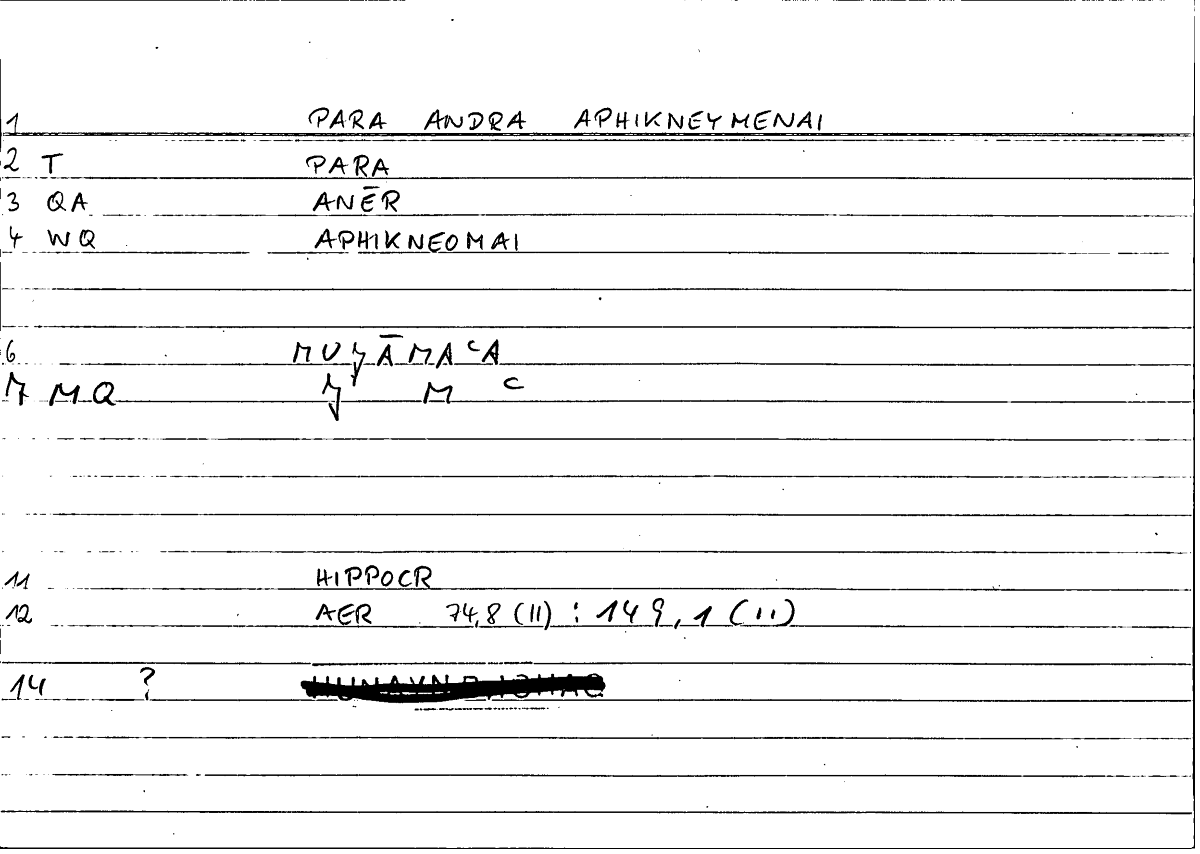 1 PARA ANDRA APHIKNEYMENAI
2 T PARA
3 QA ANĒR
4 WQ APHIKNEOMAI
6 MUJĀMAᶜA
7 MQ J M ᶜ
11 HIPPOCR
12 AER 74,8 (II) : 149,1 (II)
14 ?